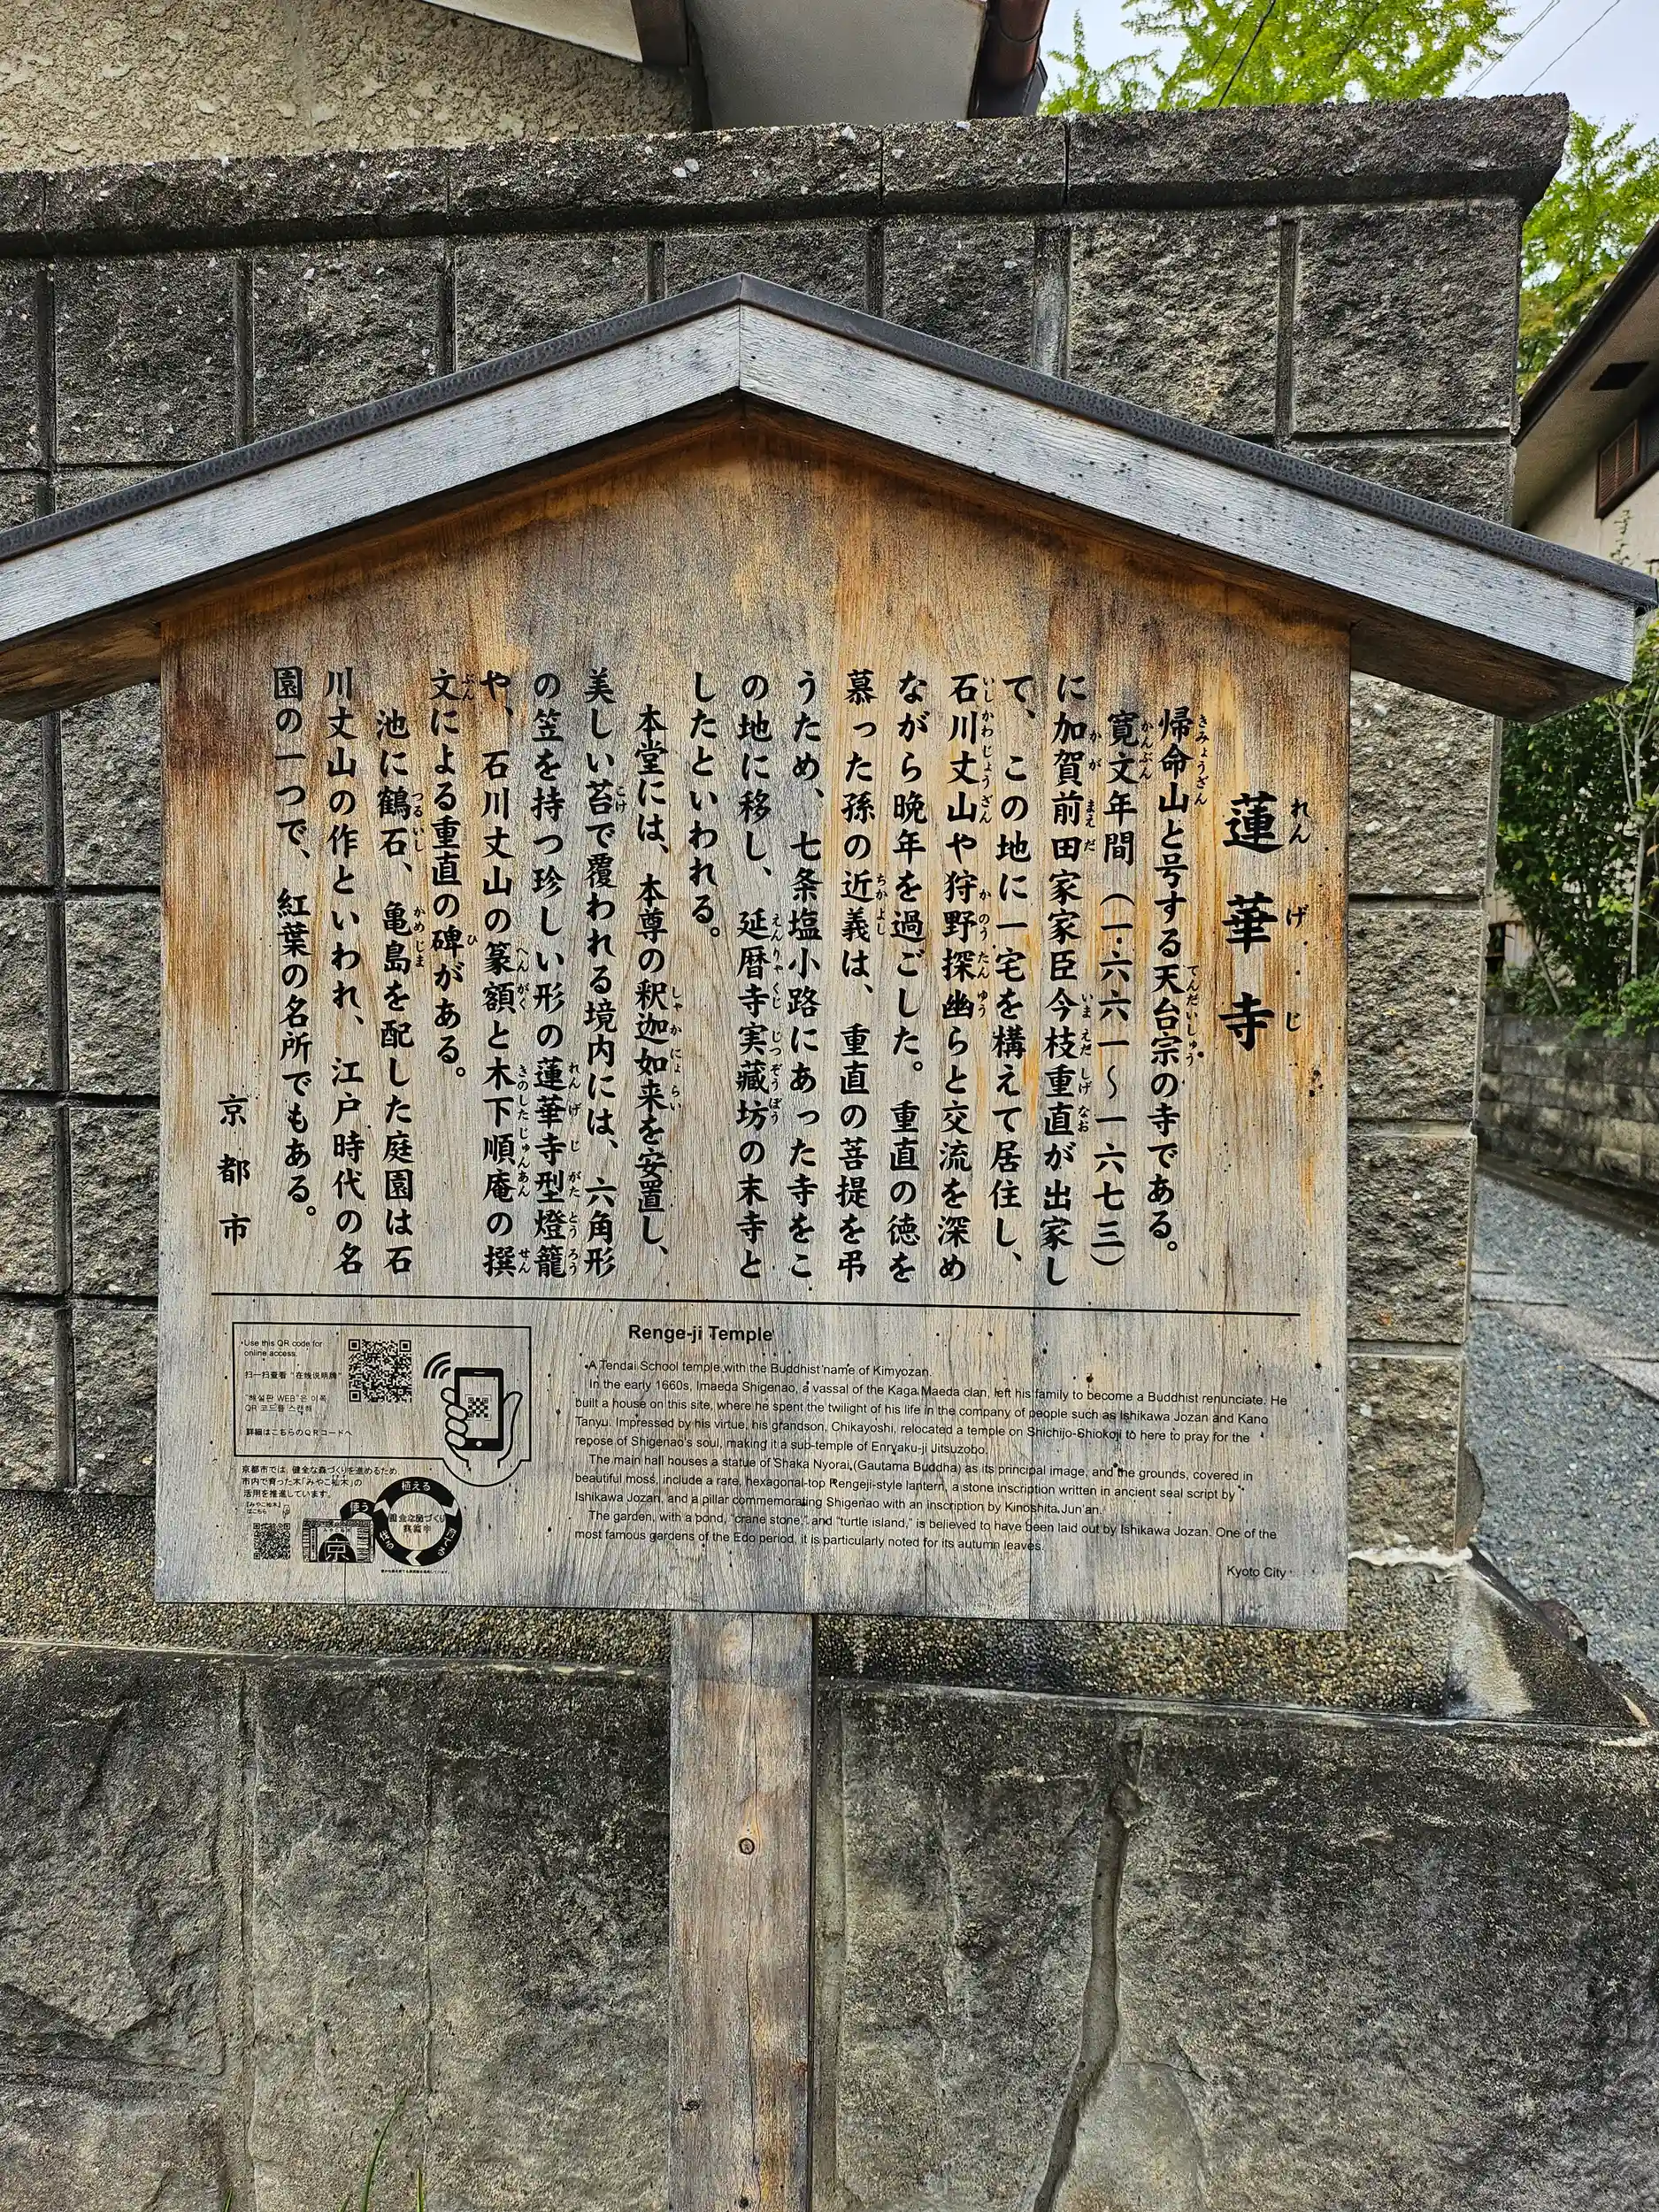 蓮華寺
れんげじ
帰命山と号する天台宗の寺である。
きみょうざん
てんだいしゅう
寛文年間（一六六一〜一六七三）
かんぶん
に加賀前田家家臣今枝重直が出家し
かが
まえだ
いまえだしげなお
て、この地に一宅を構えて居住し、
石川丈山や狩野探幽らと交流を深め
いしかわじょうざん
かのうたんゆう
ながら晩年を過ごした。重直の徳を
慕った孫の近義は、重直の菩提を弔
ちかよし
うため、七条塩小路にあった寺をこ
の地に移し、延暦寺実藏坊の末寺と
えんりゃくじ
じつぞうぼう
したといわれる。
本堂には、本尊の釈迦如来を安置し、
しゃかにょらい
美しい苔で覆われる境内には、六角形
こけ
の笠を持つ珍しい形の蓮華寺型燈籠
れんげじがたとうろう
や、石川丈山の篆額と木下順庵の撰
へんがく
きのしたじゅんあん
せん
文による重直の碑がある。
ぶん
ひ
池に鶴石、亀島を配した庭園は石
つるいし
かめじま
川丈山の作といわれ、江戸時代の名
園の一つで、紅葉の名所でもある。
京都市
Use this QR code for
online access.
扫一扫查看“在线说明牌”
"해설판 WEB"은 이쪽
QR 코드를 스캔해
詳細はこちらのQRコードへ
京都市では、健全な森づくりを進めるため
市内で育った木「みやこ杣木」の
活用を推進しています。
『みやこ杣木』
はこちら
植える
育てる
使う
京
Renge-ji Temple
A Tendai School temple with the Buddhist name of Kimyozan.
In the early 1660s, Imaeda Shigenao, a vassal of the Kaga Maeda clan, left his family to become a Buddhist renunciate. He
built a house on this site, where he spent the twilight of his life in the company of people such as Ishikawa Jozan and Kano
Tanyu. Impressed by his virtue, his grandson, Chikayoshi, relocated a temple on Shichijo-Shiokoji to here to pray for the
repose of Shigenao's soul, making it a sub-temple of Enryaku-ji Jitsuzobo.
The main hall houses a statue of Shaka Nyorai (Gautama Buddha) as its principal image, and the grounds, covered in
beautiful moss, include a rare, hexagonal-top Rengeji-style lantern, a stone inscription written in ancient seal script by
Ishikawa Jozan, and a pillar commemorating Shigenao with an inscription by Kinoshita Jun'an.
The garden, with a pond, "crane stone," and "turtle island," is believed to have been laid out by Ishikawa Jozan. One of the
most famous gardens of the Edo period, it is particularly noted for its autumn leaves.
Kyoto City